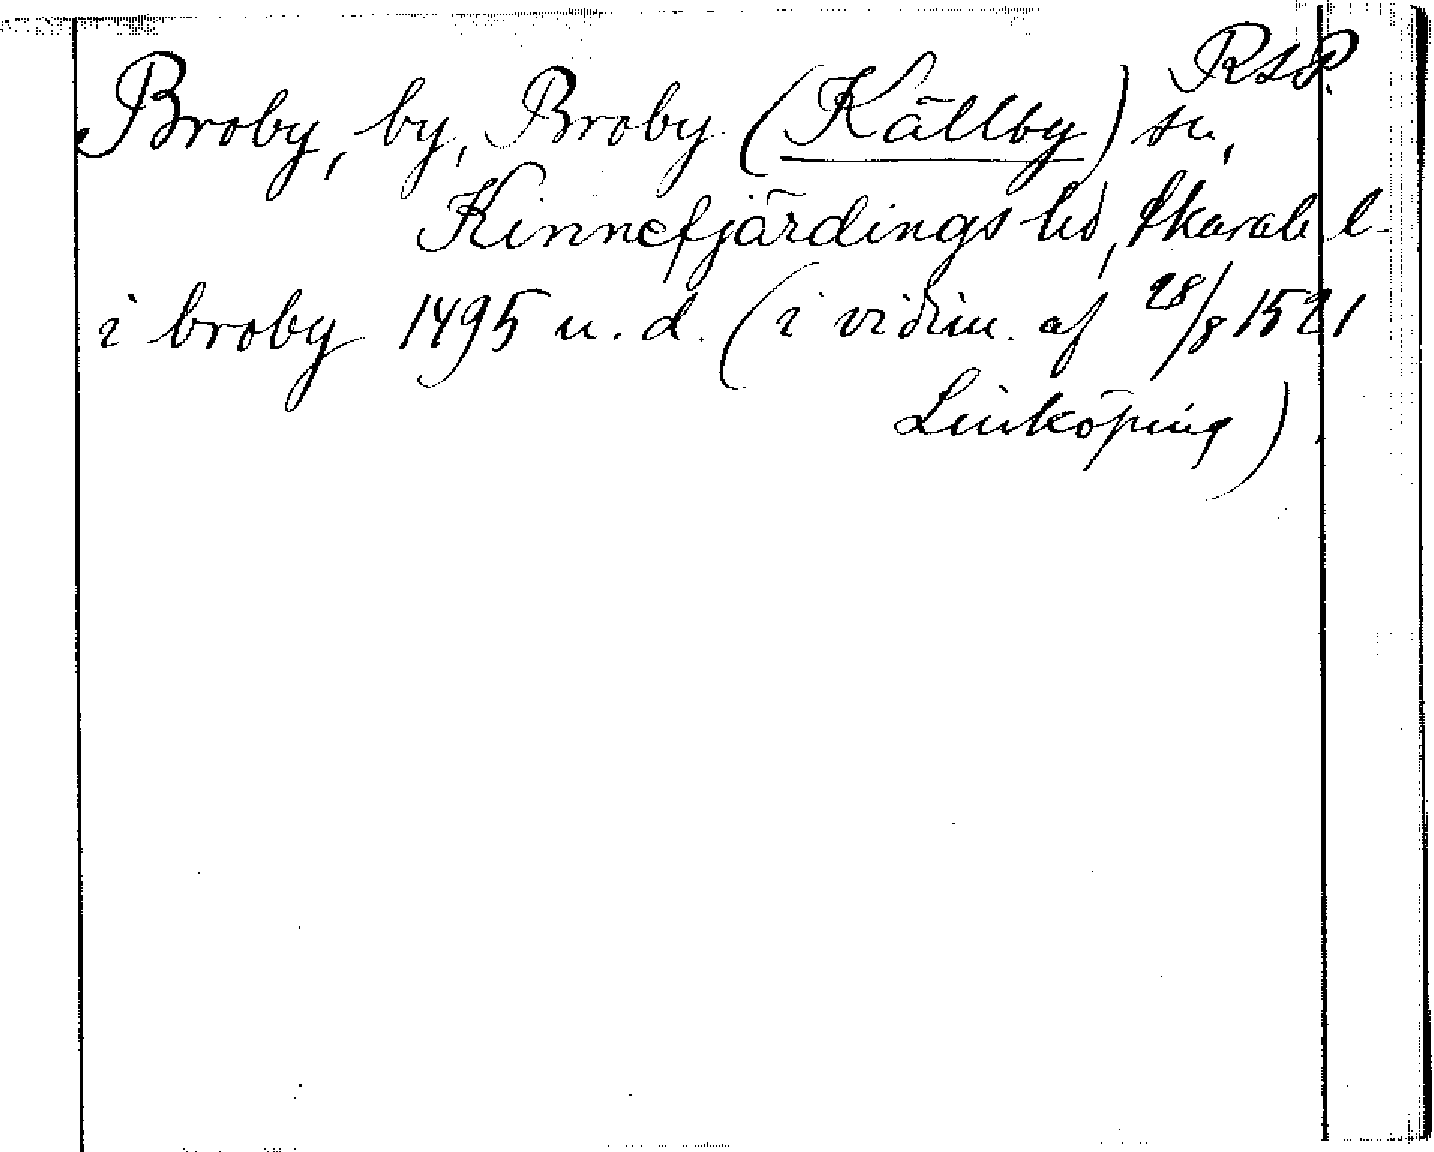 RAP.
Broby, by, Broby (Källby) sn,
Kinnefjärdings hd, Skarab l.
i broby 1495 u. d. (i vidim. af 28/8 1521
Linköping)